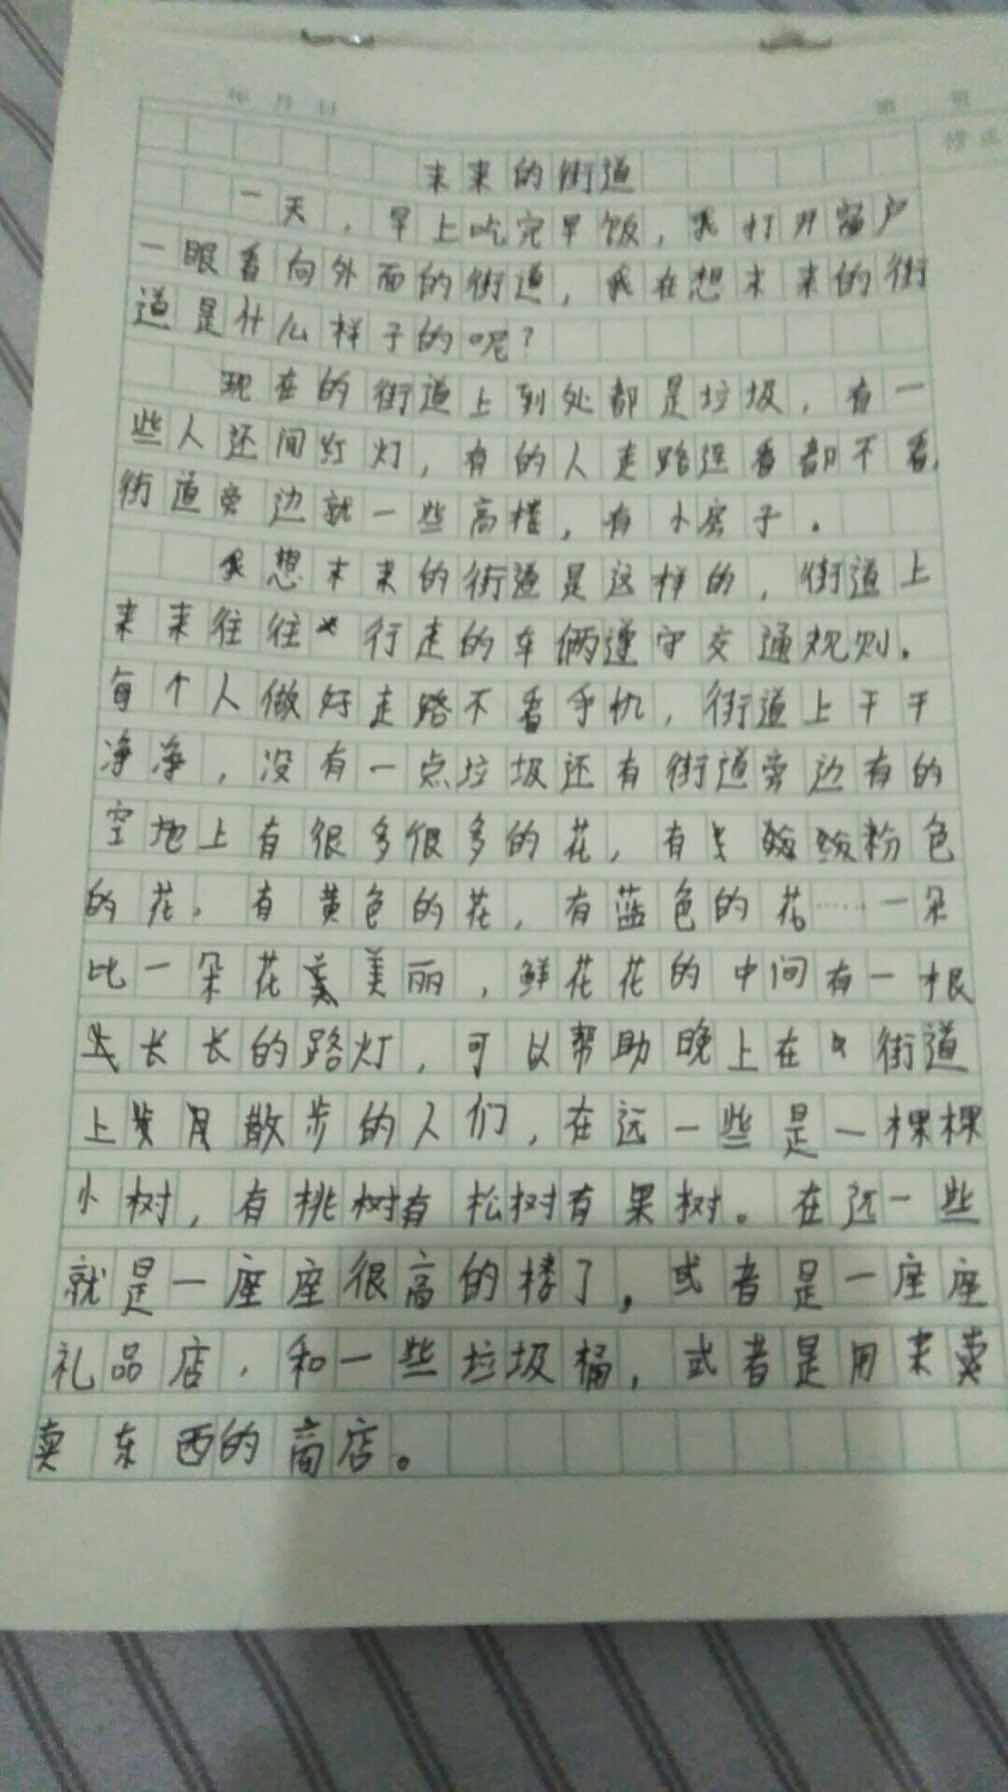 年 月 日
第 页
未来的街道
一天，早上吃完早饭，我打开窗户
一眼看向外面的街道，我在想未来的街
道是什么样子的呢？
现在的街道上到处都是垃圾，有一
些人还闯红灯，有的人走路连看都不看，
街道旁边就一些高楼，有小房子。
我想未来的街道是这样的，街道上
来来往往行走的车俩遵守交通规则。
每个人做好走路不看手机，街道上干干
净净，没有一点垃圾还有街道旁边有的
空地上有很多很多的花，有粉色
的花，有黄色的花，有蓝色的花……一朵
比一朵花美丽，鲜花花的中间有一根
长长的路灯，可以帮助晚上在街道
上散步的人们，在远一些是一棵棵
小树，有桃树有松树有果树。在远一些
就是一座座很高的楼了，或者是一座座
礼品店，和一些垃圾桶，或者是用来卖
卖东西的商店。